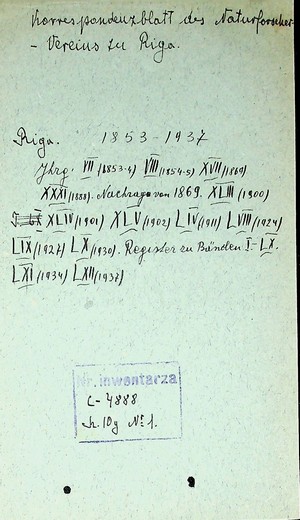 Korrespondenzblatt des Naturforscher-
- Vereins zu Riga.
Riga. 1853-1937
Jhrg. VII (1853-4) VIII (1854-5) XVII (1869)
XXXI (1888). Nachtrag von 1869. XLIII (1900)
XLIV (1901) XLV (1902) LIV (1911) LVIII (1924)
LIX (1927) LX (1930). Register zu Bänden I-LX.
LXI (1934) LXII (1937)
Nr. inwentarza
C-4888
№ 1.